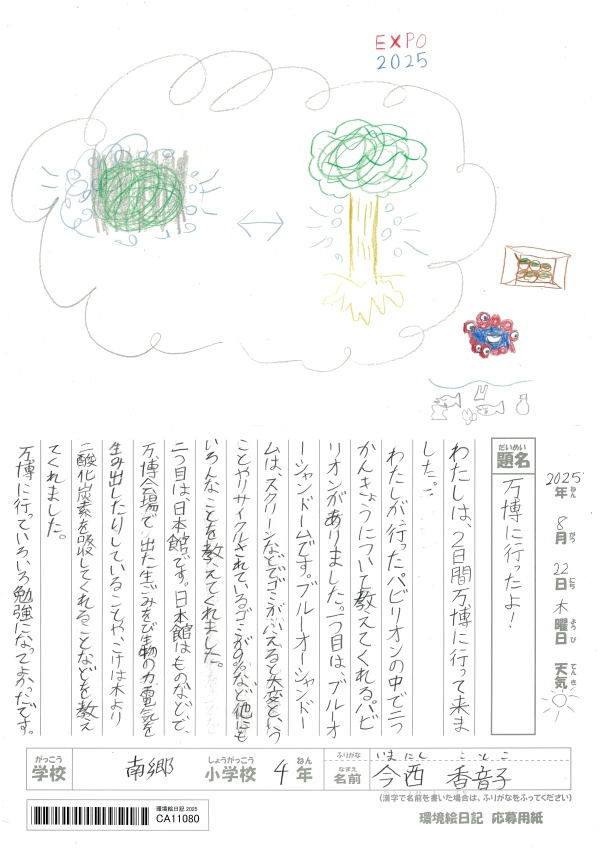 EXPO
2025
2025年ねん 8月がつ 22日にち 木曜日ようび 天気てんき
だいめい
題名
万博に行ったよ!
わたしは、2日間万博に行って来ま
した。
わたしが行ったパビリオンの中で二つ
かんきょうについて教えてくれるパビ
リオンがありました。一つ目は、ブルーオ
ーシャンドームです。ブルーオーシャンドー
ムは、スクリーンなどでゴミがふえると大変という
ことやリサイクルされているゴミが9%など他にも
いろんなことを教えてくれました。
二つ目は、日本館です。日本館はものなどで、
万博会場で出た生ごみをび生物の力で電気を
生み出したりしていることや、こけは木より
二酸化炭素を吸収してくれることなどを教え
てくれました。
万博に行っていろいろ勉強になってよかったです。
がっこう
学校
南郷
しょうがっこう
小学校
4
ねん
年
ふりがな
いまにし ことこ
なまえ
名前
今西 香音子
(漢字で名前を書いた場合は、ふりがなをふってください)
環境絵日記 2025
CA11080
環境絵日記 応募用紙